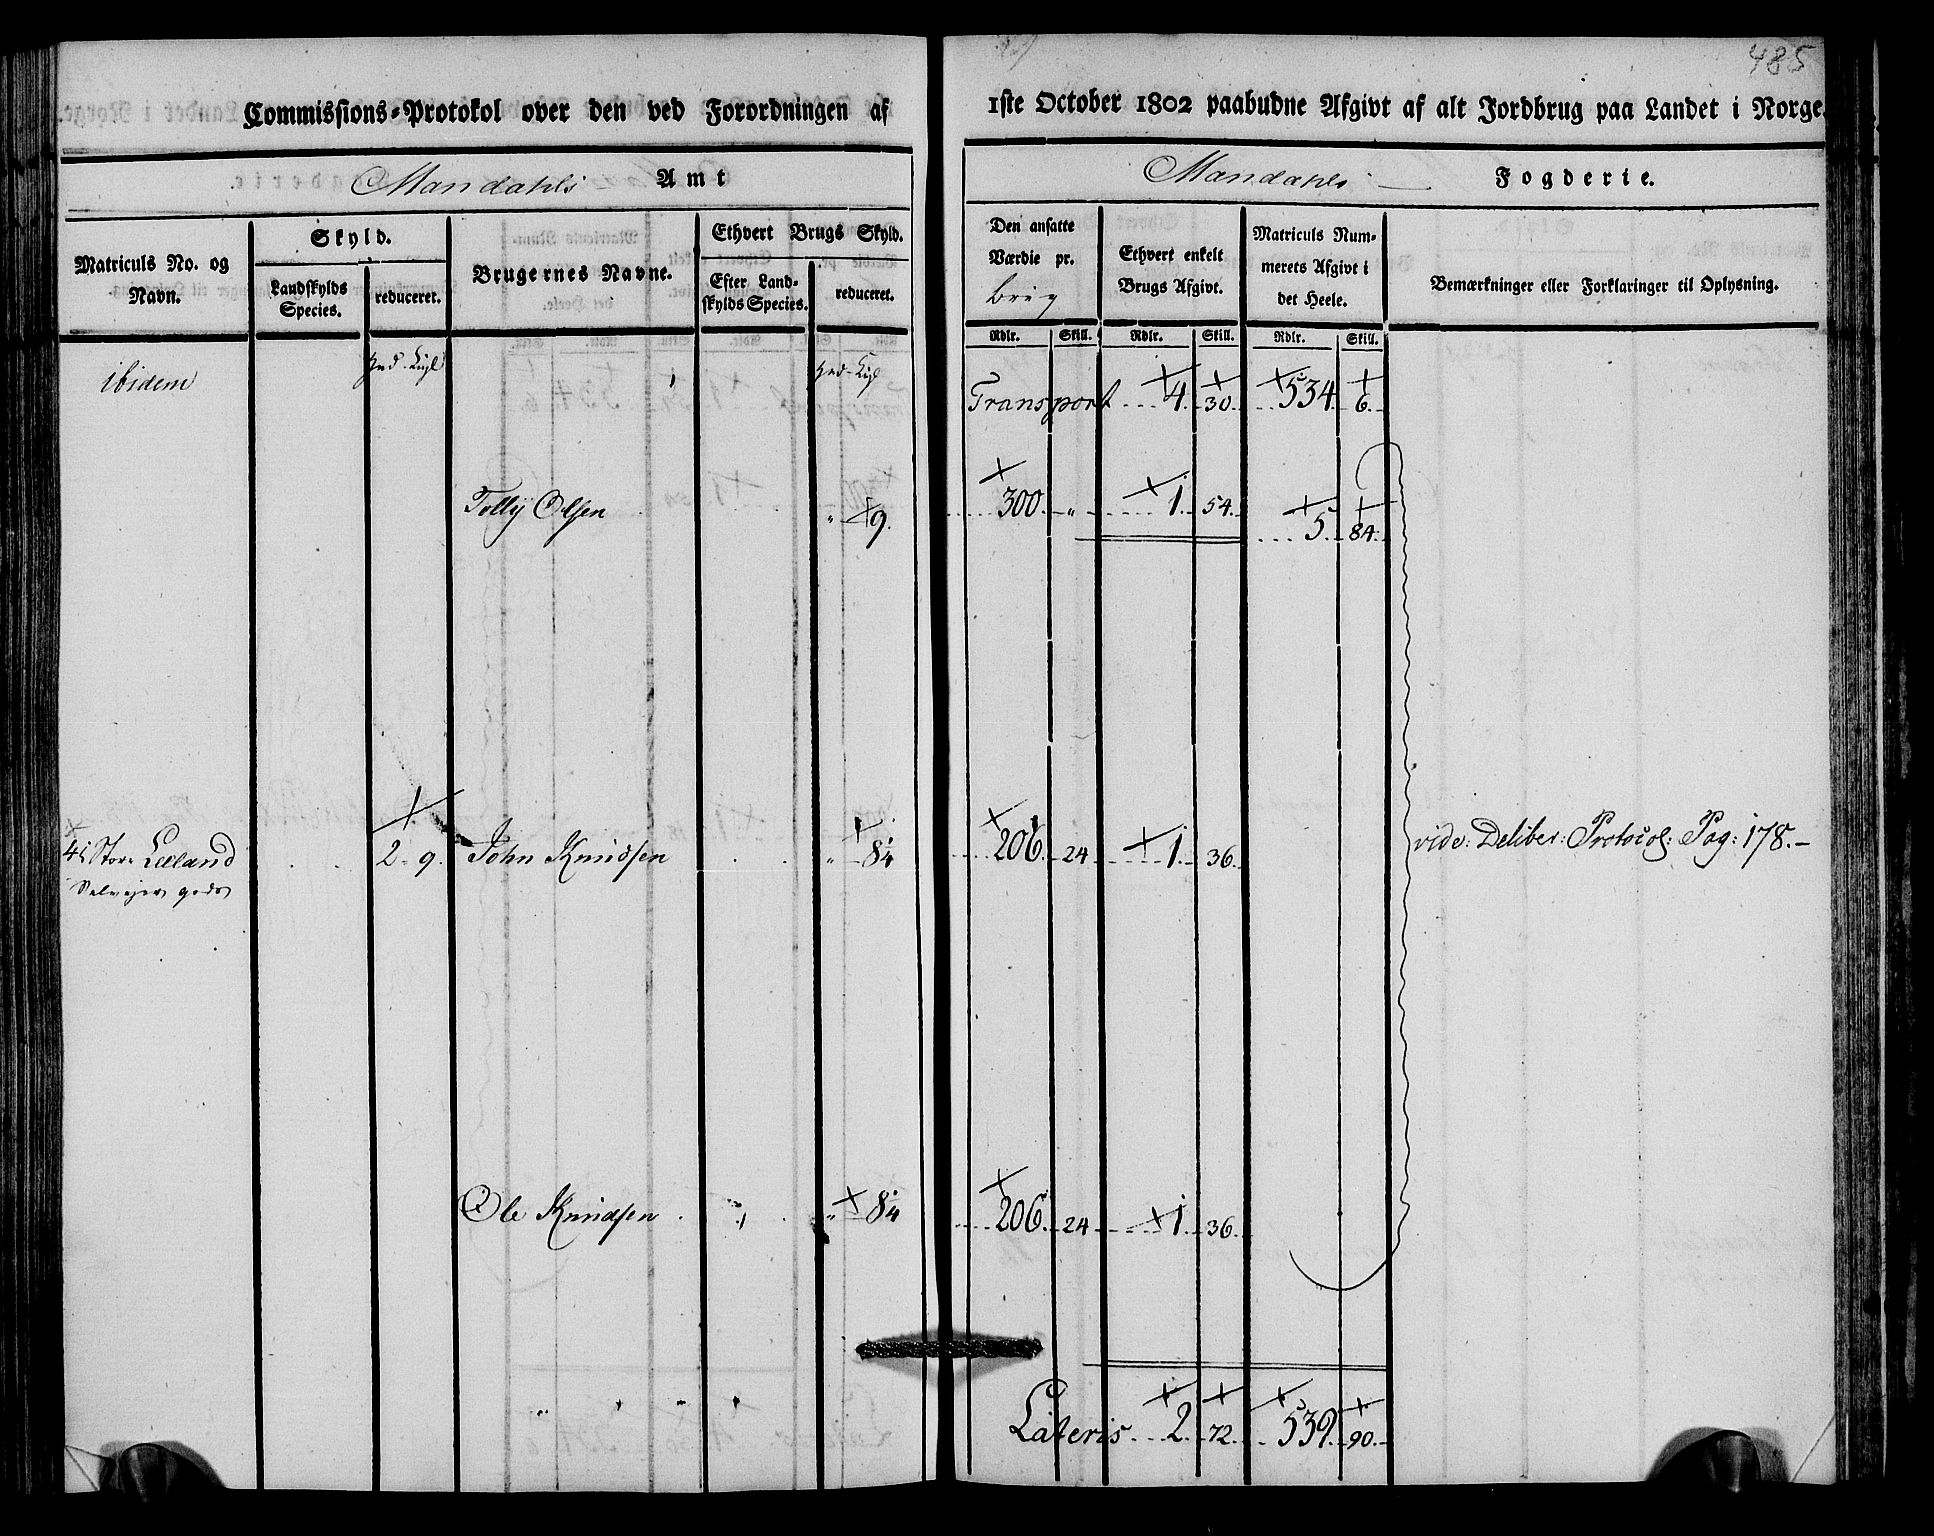 485
Commissions-Protokol over den ved Forordningen af 1ste October 1802 paabudne Afgivt af alt Jordbrug paa Landet i Norge.
Mandahls Amt
Mandahls Fogderie.
Matriculs No. og Navn.
Skyld.
Landskylds Species.
reduceret.
Brugernes Navne.
Ethvert Brugs Skyld.
Efter Landskylds Species.
reduceret.
Den ansatte Værdie pr. Brug
Ethvert enkelt Brugs Afgivt.
Matriculs Nummerets Afgivt i det Heele.
Bemærkninger eller Forklaringer til Oplysning.
Rdlr. Skill. Rdlr. Skill. Rdlr. Skill.
ibidem
Transport 4. 30. 534. 6.
Tolly Olsen " 9. 300. " 1. 54. 5. 84.
41 Store Lelland 2 - 9. John Knudsen " 8¼ 206. 24 1. 36. vide: Deliber: Protocol: Pag: 178. –
Selveier gods
Ole Knudsen " 8¼ 206. 24 1. 36.
Lateris 2. 72. 539. 90.